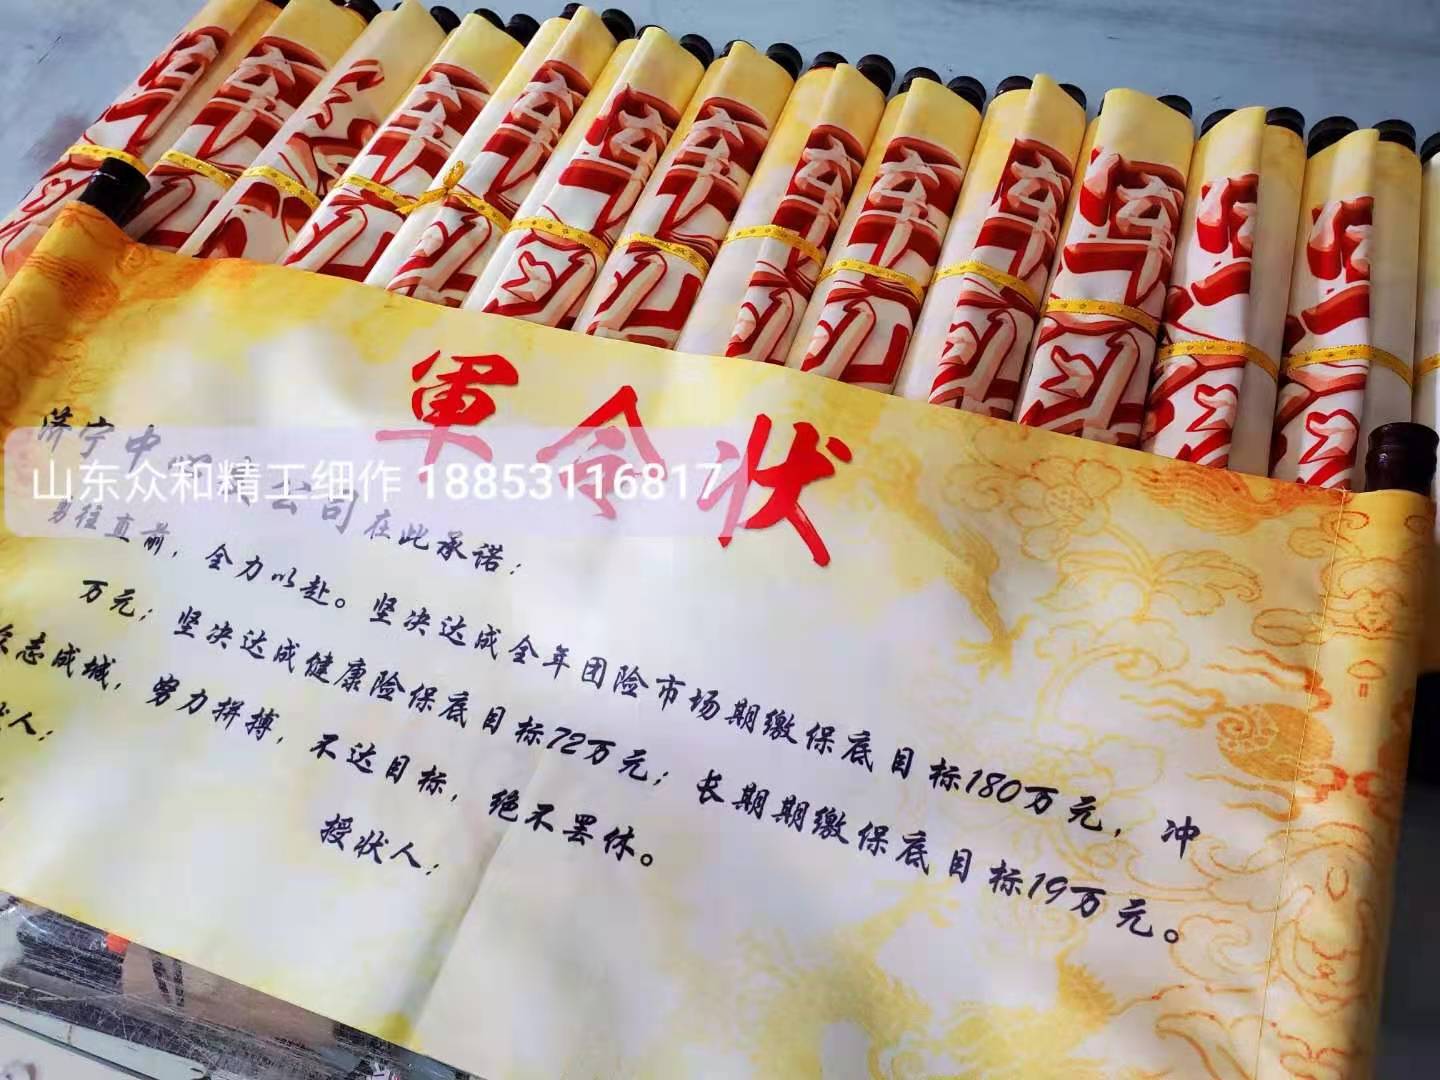 軍令状
济宁中
公司在此承诺：
勇往直前，全力以赴。坚决达成全年团险市场期缴保底目标180万元，冲
万元；坚决达成健康险保底目标72万元；长期期缴保底目标19万元。
众志成城，努力拼搏，不达目标，绝不罢休。
状人：
授状人：
山东众和精工细作 18853116817